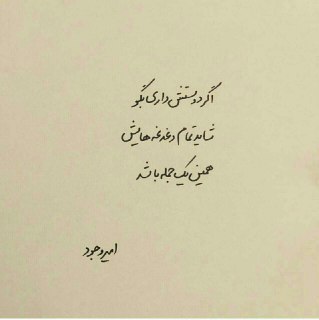 اگر دوستش داری بگو
شاید تمام دغدغه هایش
همین یک جمله باشد
امیر وجود